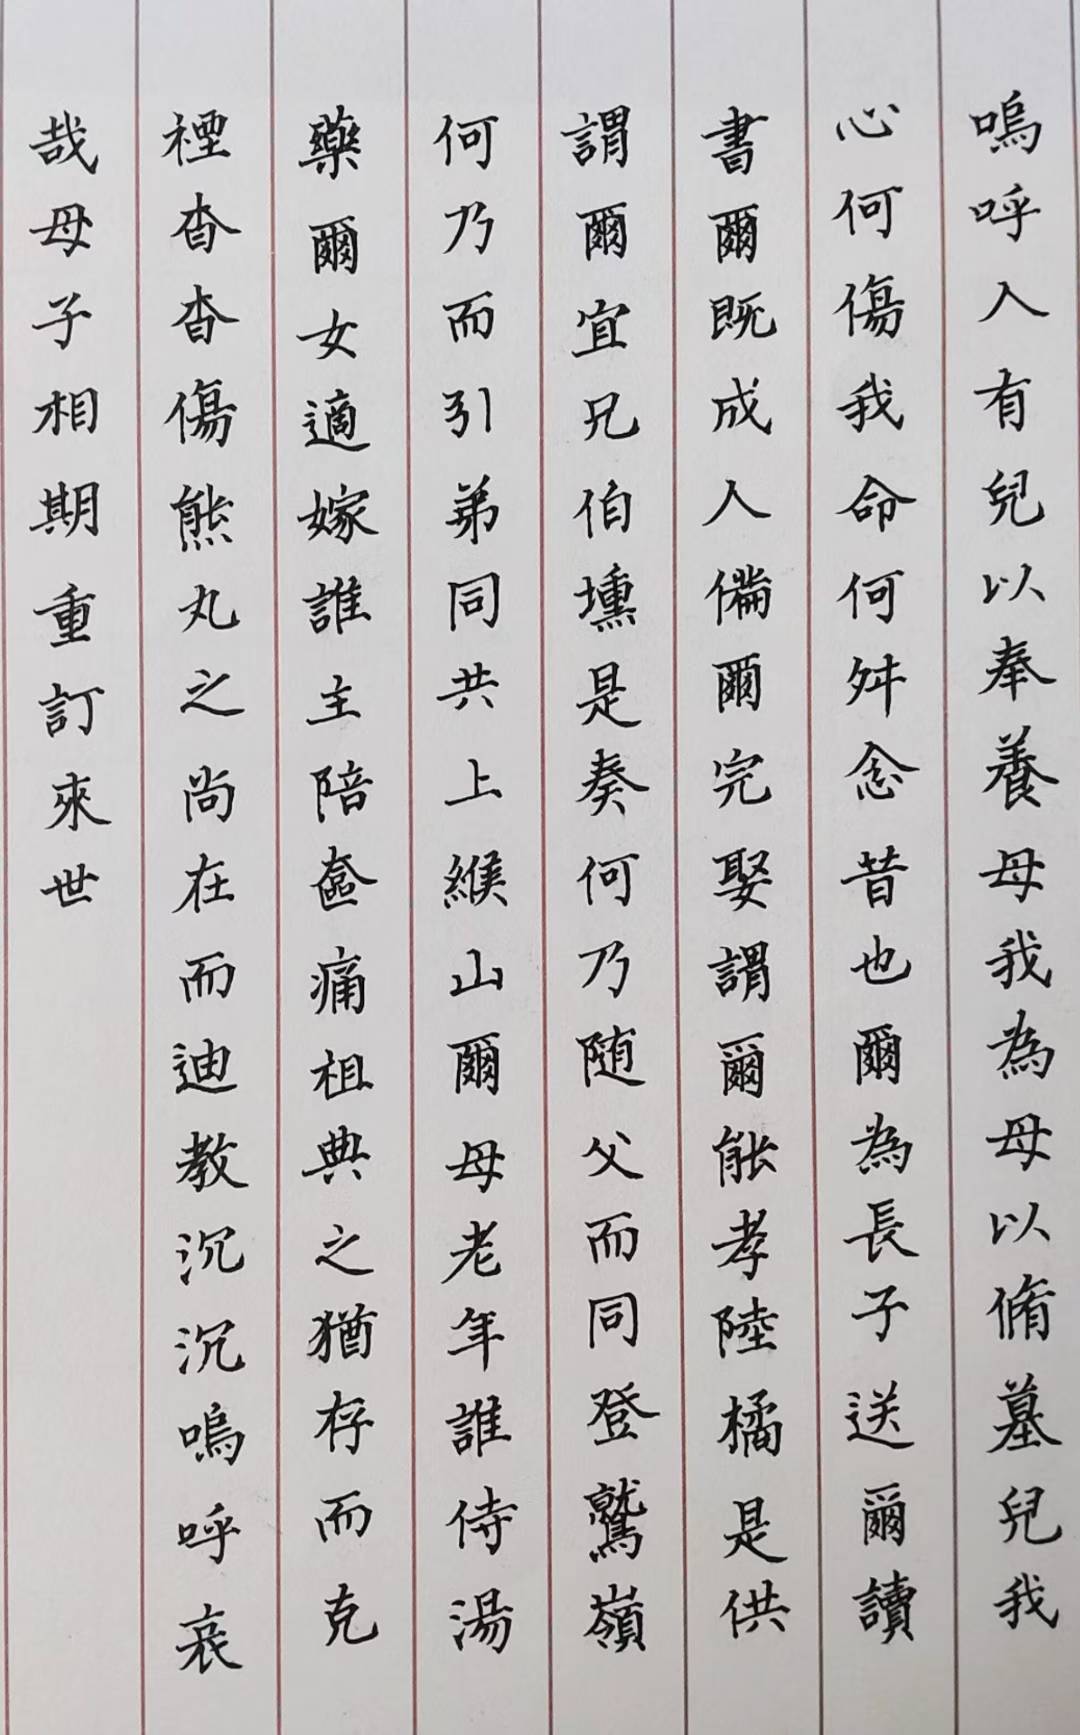 嗚呼人有兒以奉養母我為母以脩墓兒我
心何傷我命何舛念昔也爾為長子送爾讀
書爾既成人備爾完娶謂爾能孝陸橘是供
謂爾宜兄伯壎是奏何乃随父而同登鷲嶺
何乃而引弟同共上緱山爾母老年誰侍湯
藥爾女適嫁誰主陪奩痛柤典之猶存而克
禋杳杳傷熊丸之尚在而迪教沉沉嗚呼哀
哉母子相期重訂來世